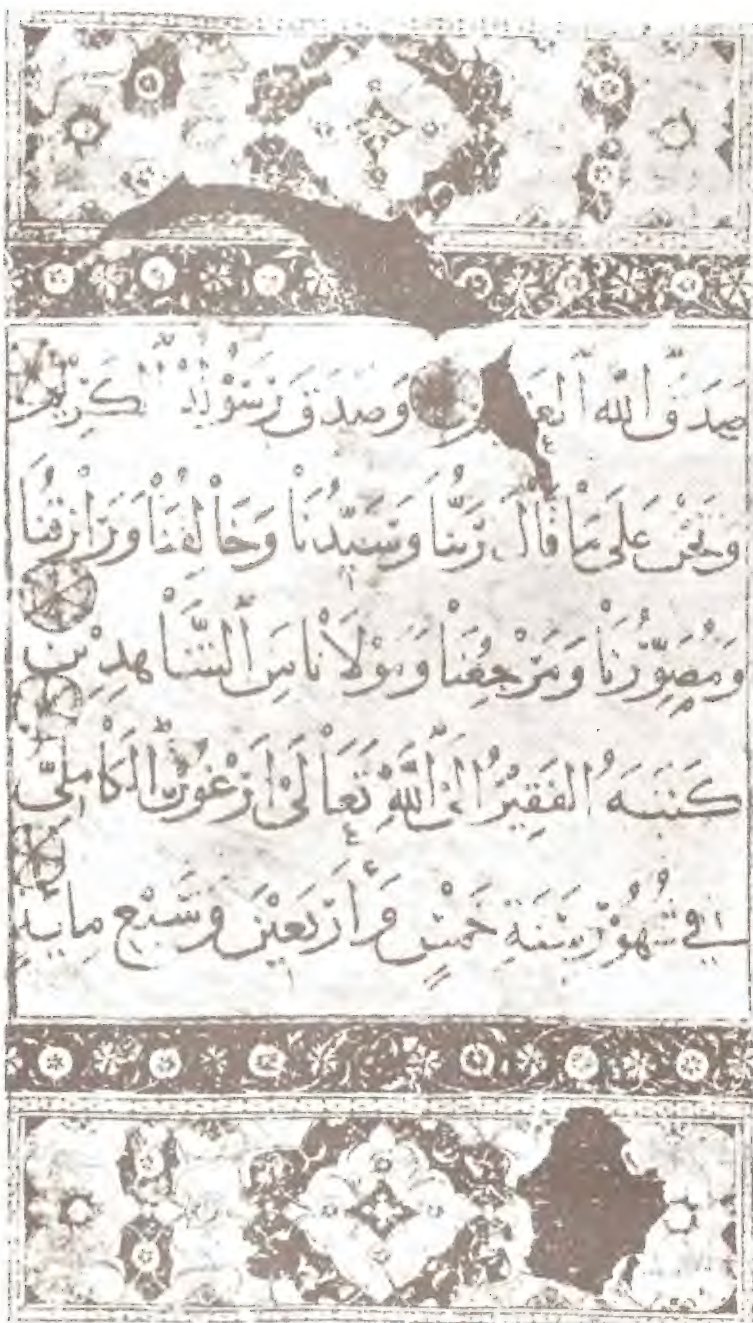 صَدَقَ اللهُ العَظِيمُ وَصَدَقَ رَسُولُهُ الكَرِيمُ
وَنَحْنُ عَلَى مَا قَالَ رَبُّنَا وَسَيِّدُنَا وَخَالِقُنَا وَرَازِقُنَا
وَمُصَوِّرُنَا وَمَرْجِعُنَا وَمَوْلَانَا مِنَ الشَّاهِدِينَ
كَتَبَهُ الفَقِيرُ إِلَى اللهِ تَعَالَى أَرْغُون الكَامِلِيّ
فِي شُهُورِ سَنَةِ خَمْسٍ وَأَرْبَعِينَ وَسَبْعِ مِايَةٍ